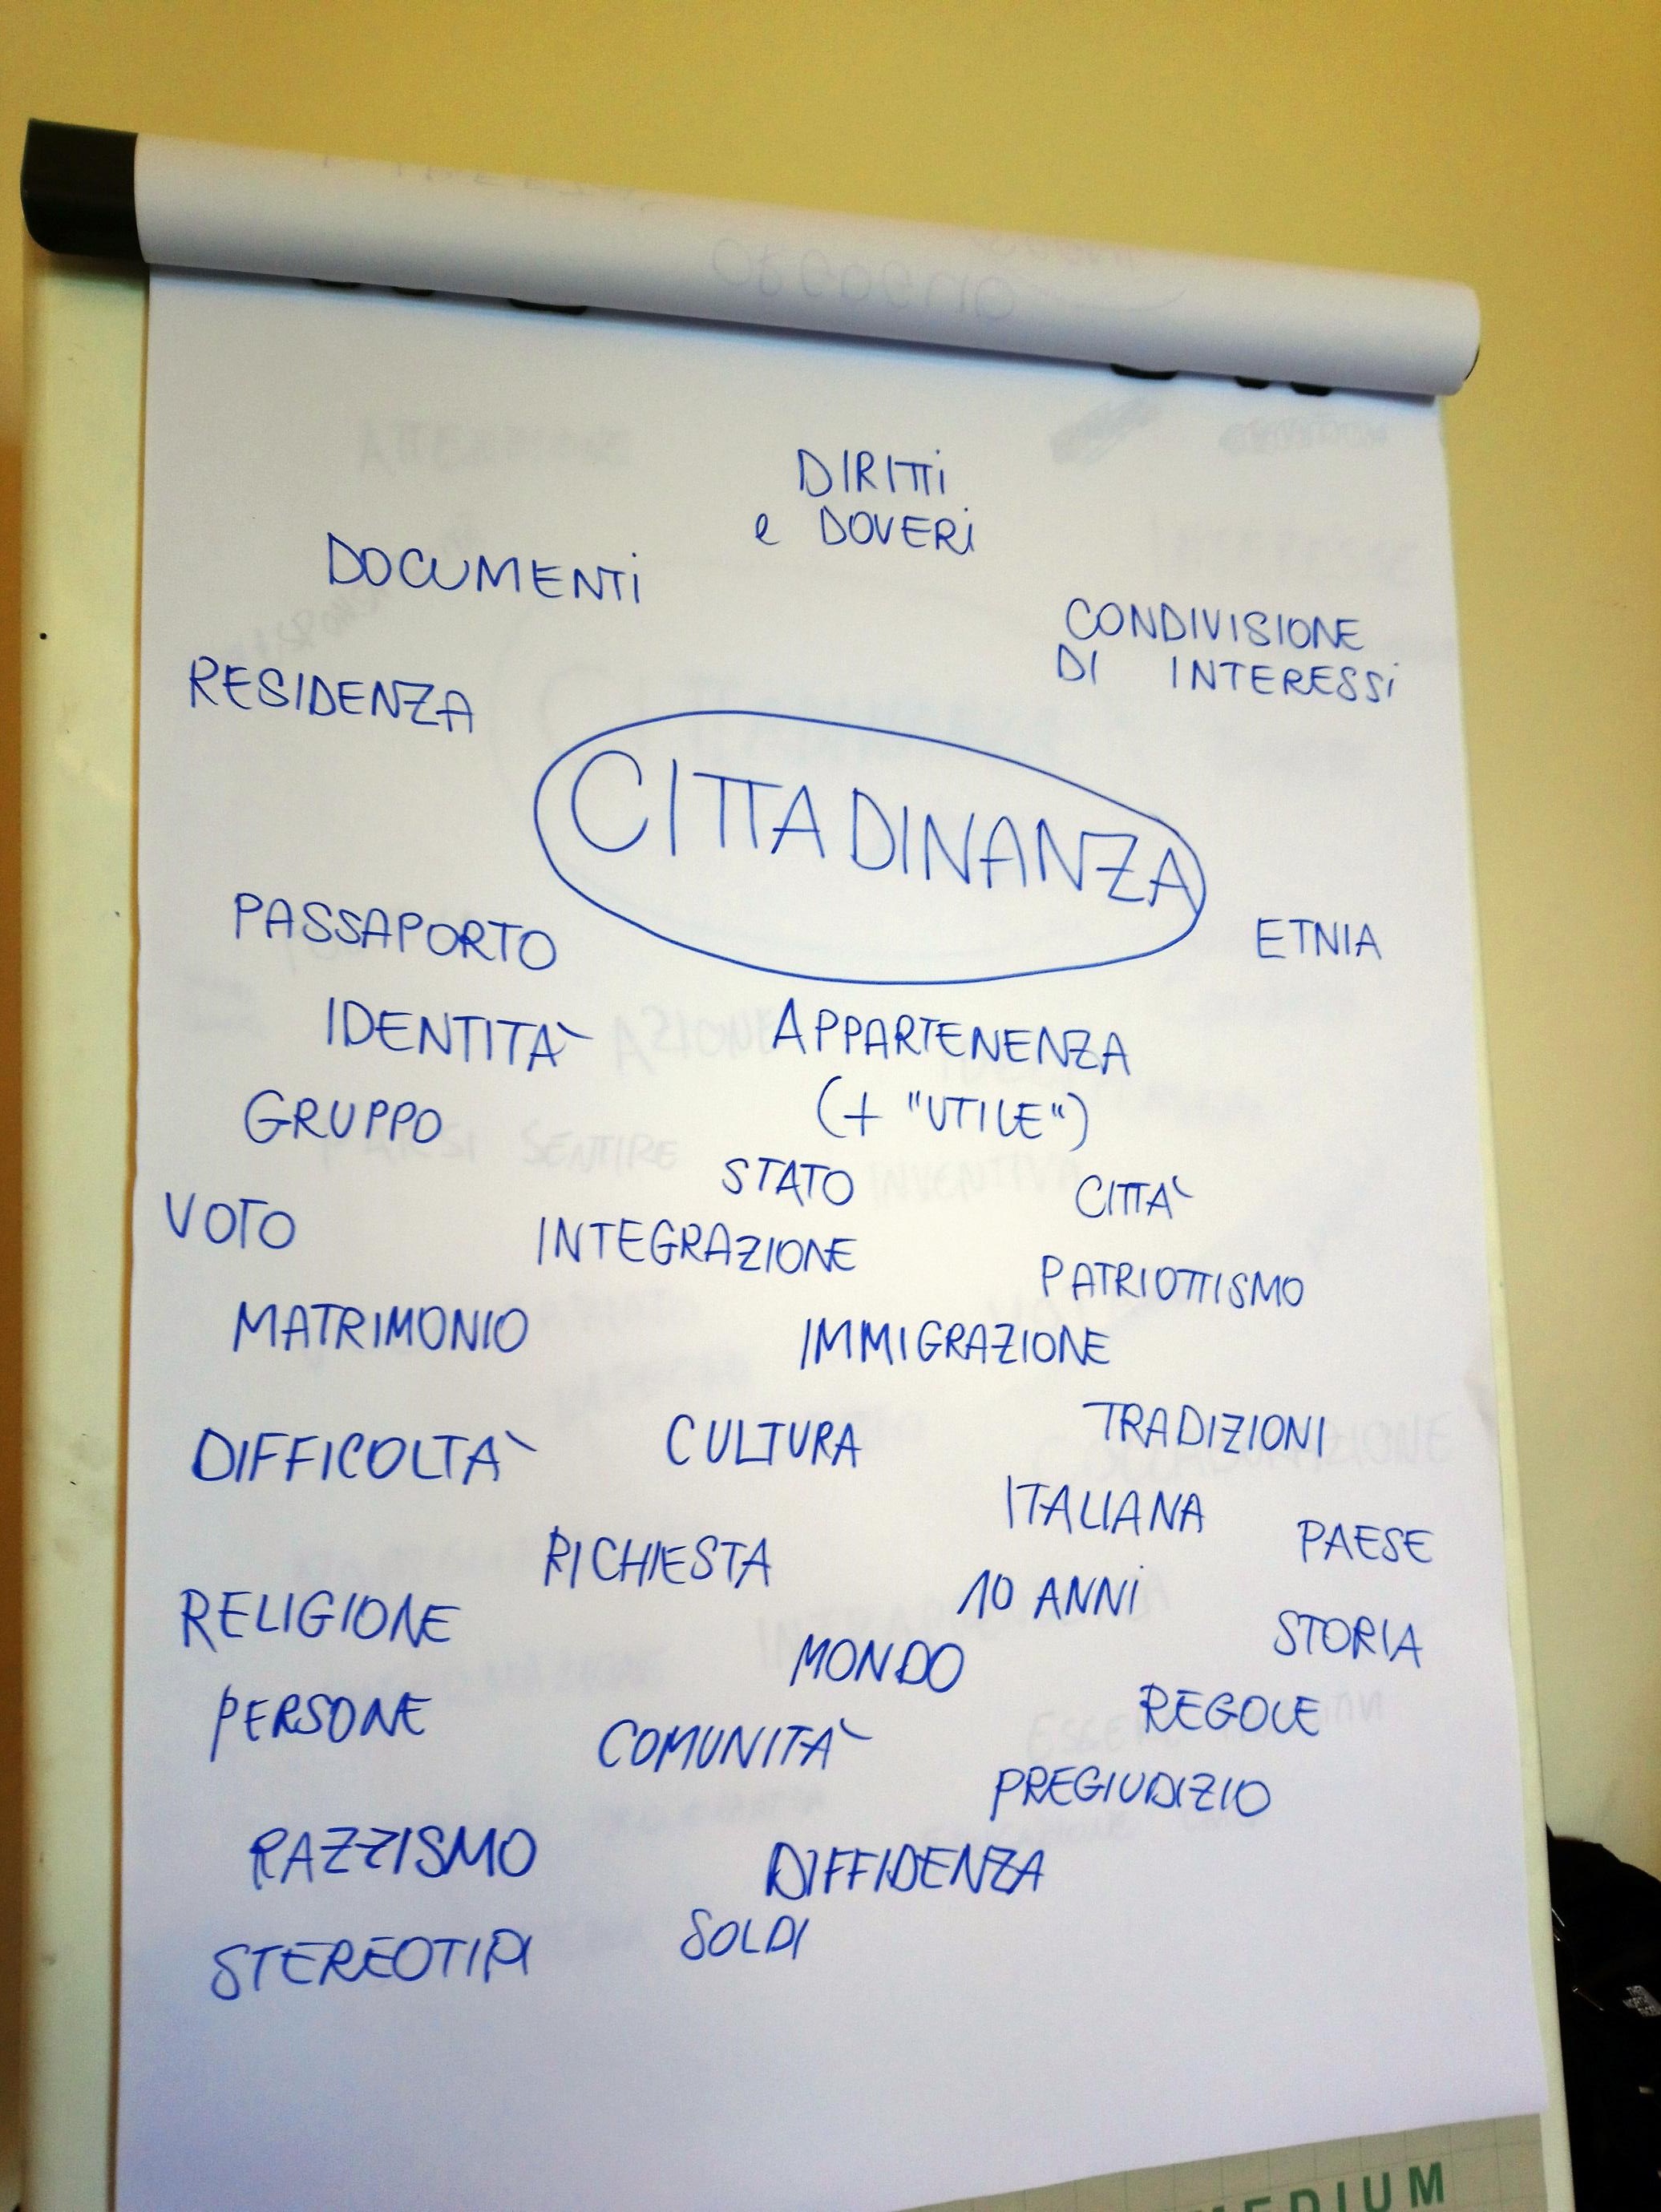 DIRITTI
e DOVERI
DOCUMENTI
CONDIVISIONE
DI INTERESSI
RESIDENZA
CITTADINANZA
PASSAPORTO
ETNIA
IDENTITA`
APPARTENENZA
(+ "UTILE")
GRUPPO
STATO
CITTA`
VOTO
INTEGRAZIONE
PATRIOTTISMO
MATRIMONIO
IMMIGRAZIONE
DIFFICOLTA`
CULTURA
TRADIZIONI
ITALIANA
PAESE
RICHIESTA
10 ANNI
RELIGIONE
STORIA
MONDO
PERSONE
REGOLE
COMUNITA`
PREGIUDIZIO
RAZZISMO
DIFFIDENZA
SOLDI
STEREOTIPI
MEDIUM